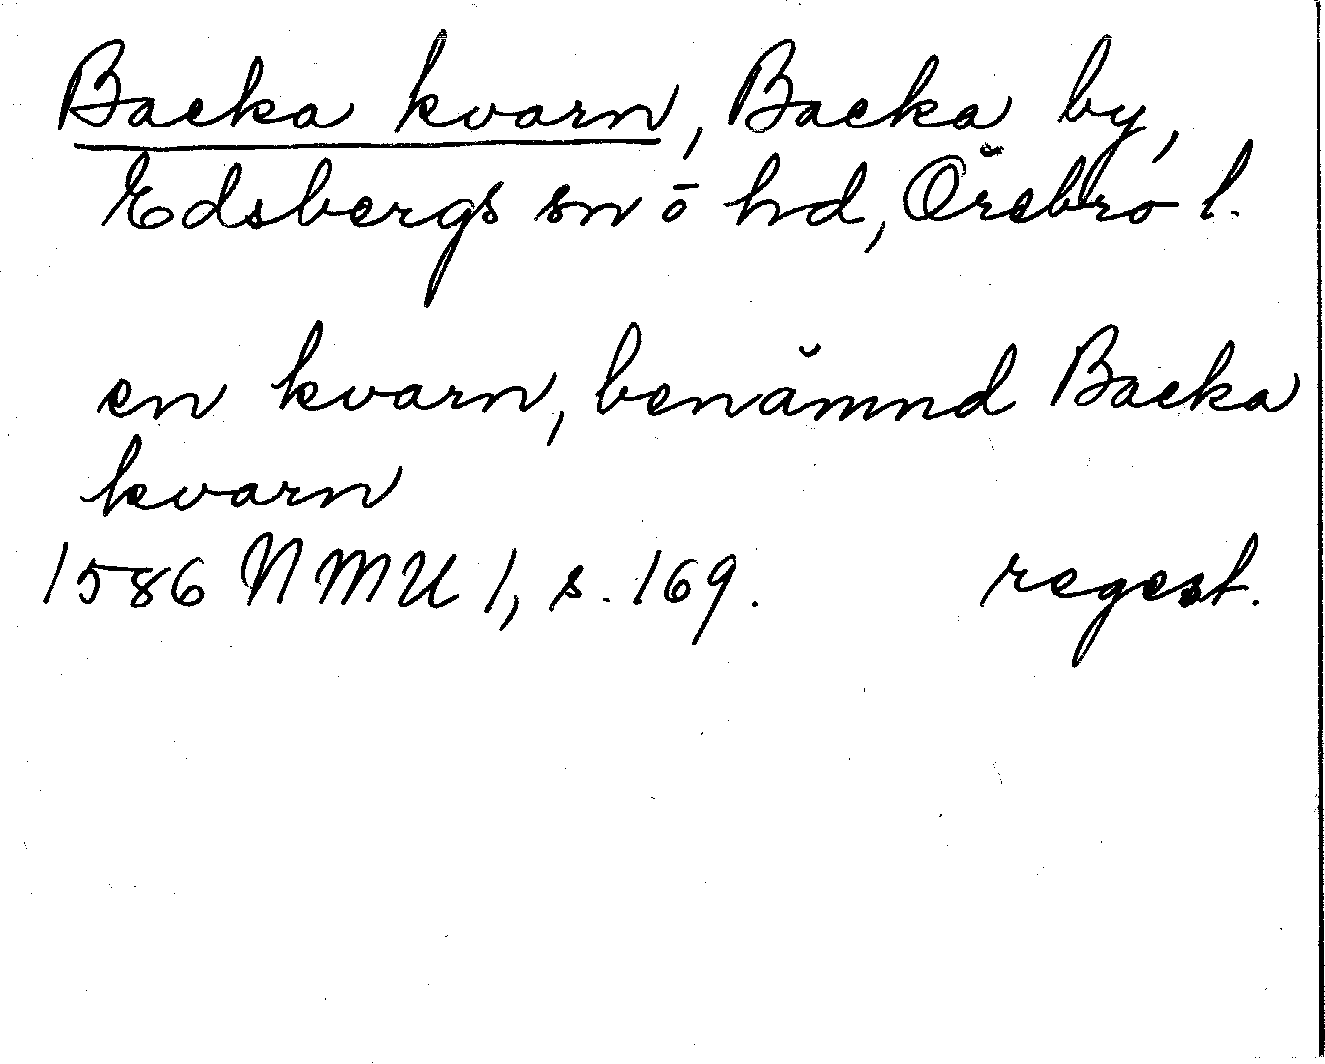 Backa kvarn, Backa by,
Edsbergs sn o hd, Örebro l.
en kvarn, benämnd Backa
kvarn
1586 NMU 1, s. 169. regest.